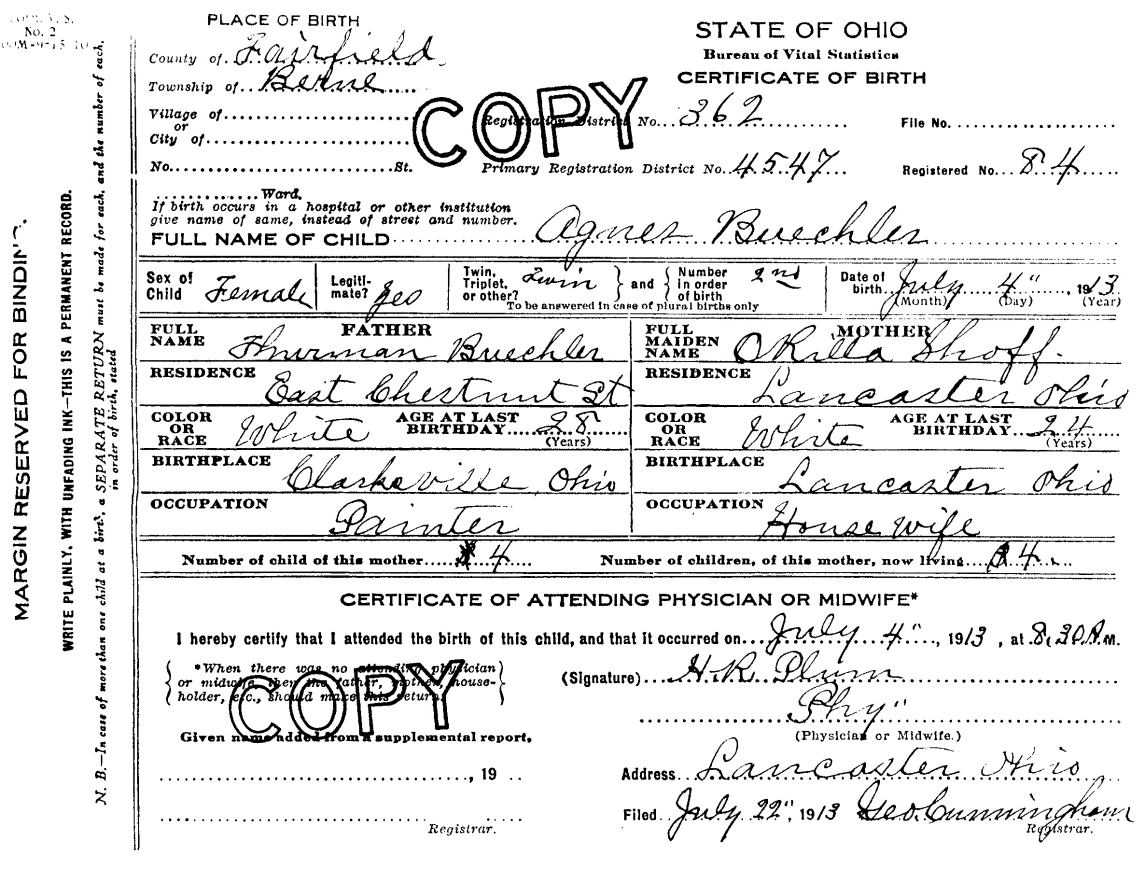 FORM V. S.
No. 2
MARGIN RESERVED FOR BINDING.
WRITE PLAINLY, WITH UNFADING INK—THIS IS A PERMANENT RECORD.
N. B.—In case of more than one child at a birth, a SEPARATE RETURN must be made for each, and the number of each,
in order of birth, stated
PLACE OF BIRTH
County of Fairfield
Township of Berne
Village of
or
City of
No. St.
Ward.
If birth occurs in a hospital or other institution
give name of same, instead of street and number.
STATE OF OHIO
Bureau of Vital Statistics
CERTIFICATE OF BIRTH
COPY
Registration District No. 362 File No.
Primary Registration District No. 4547 Registered No. 84
FULL NAME OF CHILD Agnes Buechler
Sex of Child Female Legiti-mate? Yes Twin, Triplet, or other? Twin and Number in order of birth 2nd Date of birth July 4" 1913
To be answered in case of plural births only (Month) (Day) (Year)
FATHER
FULL NAME Thurman Buechler
MOTHER
FULL MAIDEN NAME ORilla Shoff.
RESIDENCE East Chestnut St RESIDENCE Lancaster Ohio
COLOR OR RACE White AGE AT LAST BIRTHDAY 28 (Years) COLOR OR RACE White AGE AT LAST BIRTHDAY 24 (Years)
BIRTHPLACE Clarksville, Ohio BIRTHPLACE Lancaster Ohio
OCCUPATION Painter OCCUPATION House wife
Number of child of this mother 4 Number of children, of this mother, now living 4
CERTIFICATE OF ATTENDING PHYSICIAN OR MIDWIFE*
I hereby certify that I attended the birth of this child, and that it occurred on July 4", 1913, at 8,30 A.M.
*When there was no attending physician
or midwife, then the father, mother, house-
holder, etc., should make this return.
COPY
(Signature) H.R. Plum
Phy"
(Physician or Midwife.)
Given name added from a supplemental report,
, 19
Registrar.
Address Lancaster Ohio
Filed July 22", 1913 Geo. Cunningham
Registrar.